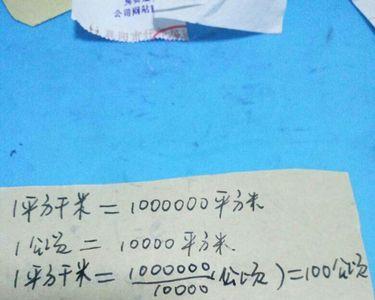 公司网站
1平方千米 = 1000000平方米
1公顷 = 10000平方米
1平方千米 = 1000000/10000(公顷) = 100公顷